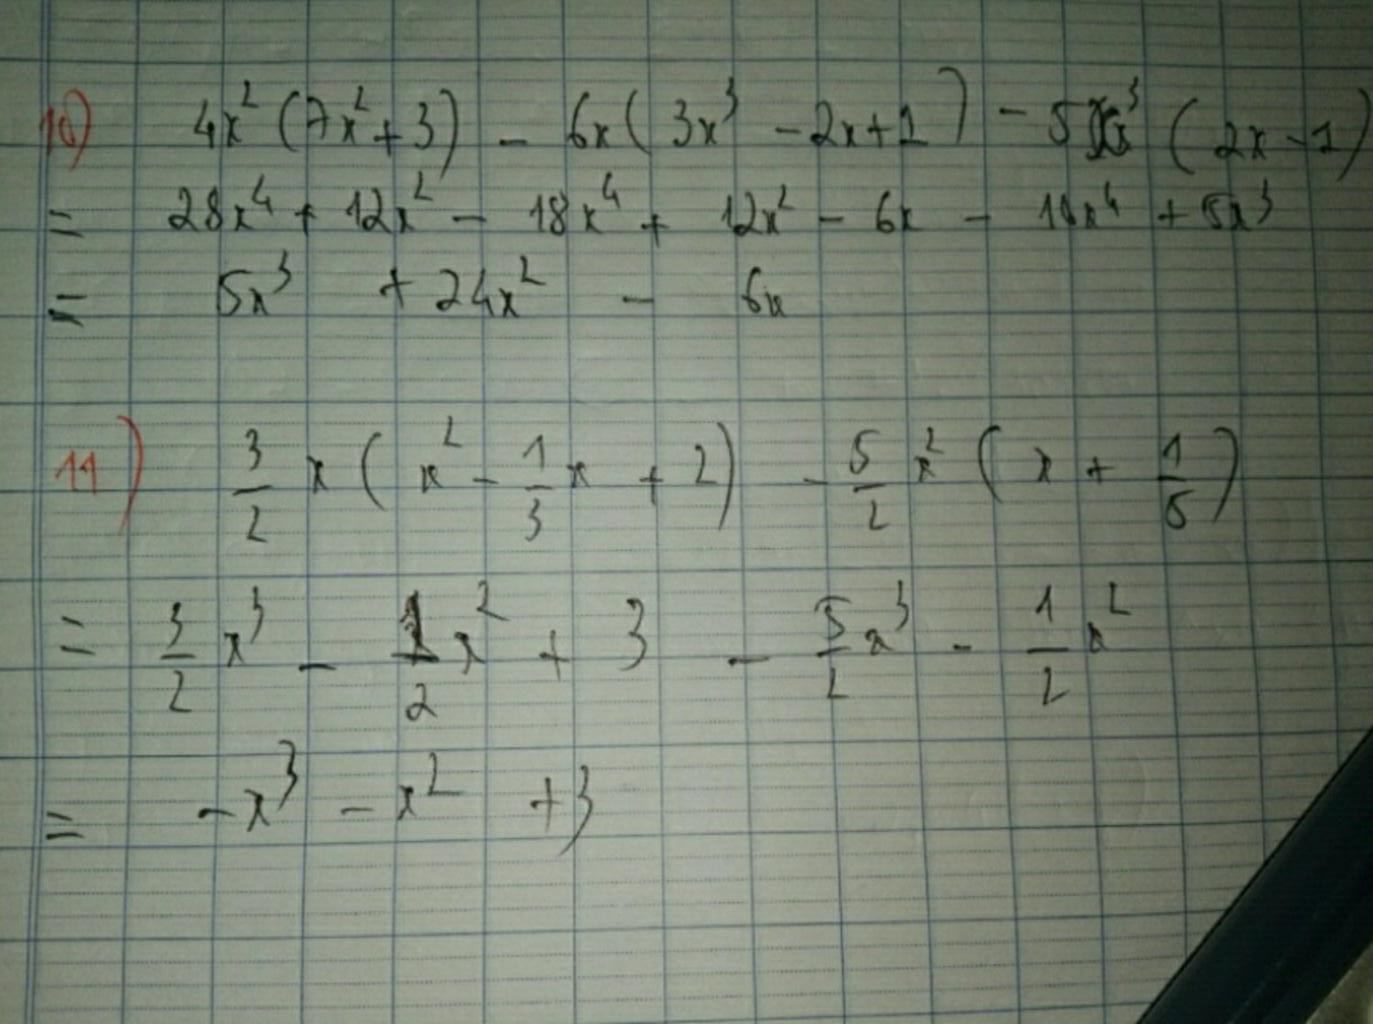 10) 4x² (7x² + 3) - 6x ( 3x³ - 2x + 1 ) - 5x³ ( 2x - 1)
= 28x⁴ + 12x² - 18x⁴ + 12x² - 6x - 10x⁴ + 5x³
= 5x³ + 24x² - 6x
11) 3/2 x ( x² - 1/3 x + 2) - 5/2 x² ( x + 1/5 )
= 3/2 x³ - 1/2 x² + 3 - 5/2 x³ - 1/2 x²
= -x³ - x² + 3